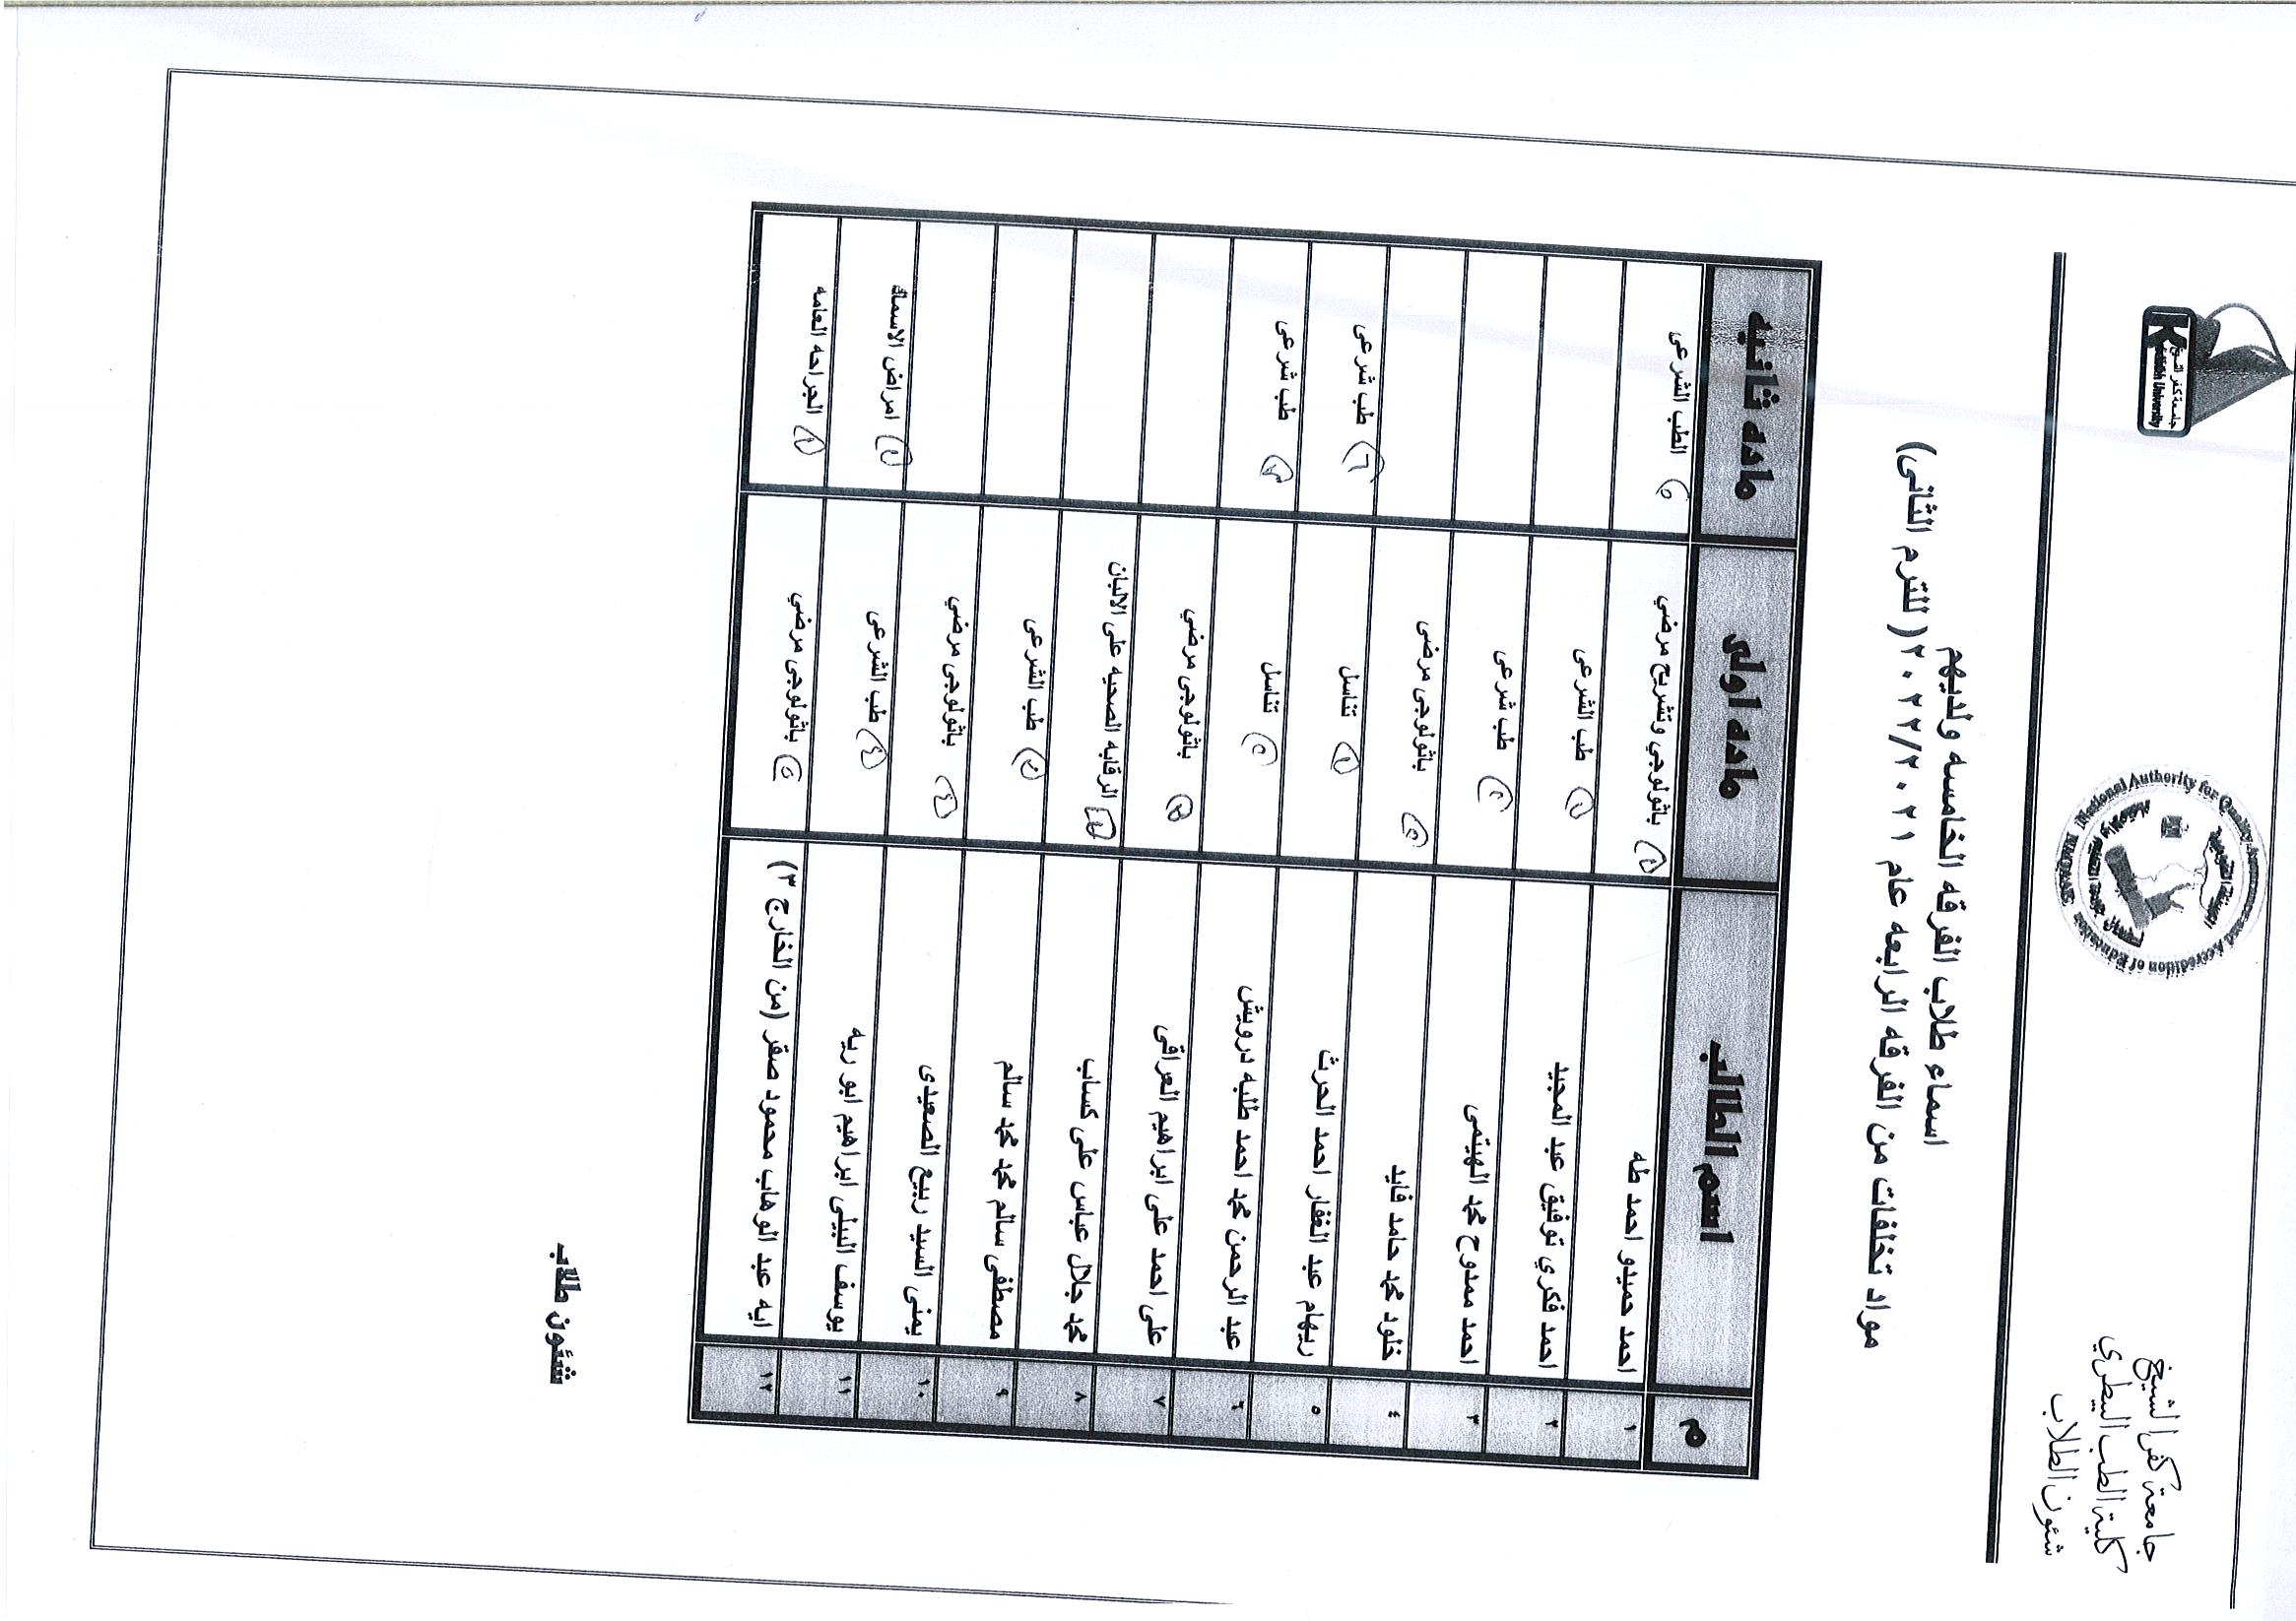 جامعة كفر الشيخ
كلية الطب البيطري
شئون الطلاب
National Authority for Quality Assurance and Accreditation of Education
NAQAAE
جامعة كفر الشيخ
University
اسماء طلاب الفرقه الخامسه ولديهم
مواد تخلفات من الفرقه الرابعه عام ٢٠٢٢/٢٠٢١ ( للترم الثانى)
م اسم الطالب ماده اولى ماده ثانيه
١ احمد حميدو احمد طه باثولوجي وتشريح مرضي الطب الشرعى ٥
٢ احمد فكري توفيق عبد المجيد طب الشرعى ١
٣ احمد ممدوح محمد الهيتمى طب شرعى ٢
٤ خلود محمد حامد فايد باثولوجى مرضى
٥ ريهام عبد الغفار احمد الحرث تناسل طب شرعى ٦
٦ عبد الرحمن محمد احمد طلبه درويش تناسل طب شرعى ٣
٧ على احمد على ابراهيم العراقى باثولوجى مرضي ٣
٨ محمد جلال عباس على كساب الرقابه الصحيه على الالبان
٩ مصطفى سالم محمد محمد سالم طب الشرعى
١٠ يمنى السيد ربيع الصعيدى باثولوجى مرضي ٤
١١ يوسف البيلى ابراهيم ابو ريه طب الشرعى ٤ امراض الاسماك
١٢ ايه عبد الوهاب محمود صقر (من الخارج ٣) باثولوجى مرضي الجراحه العامه
شئون طلاب